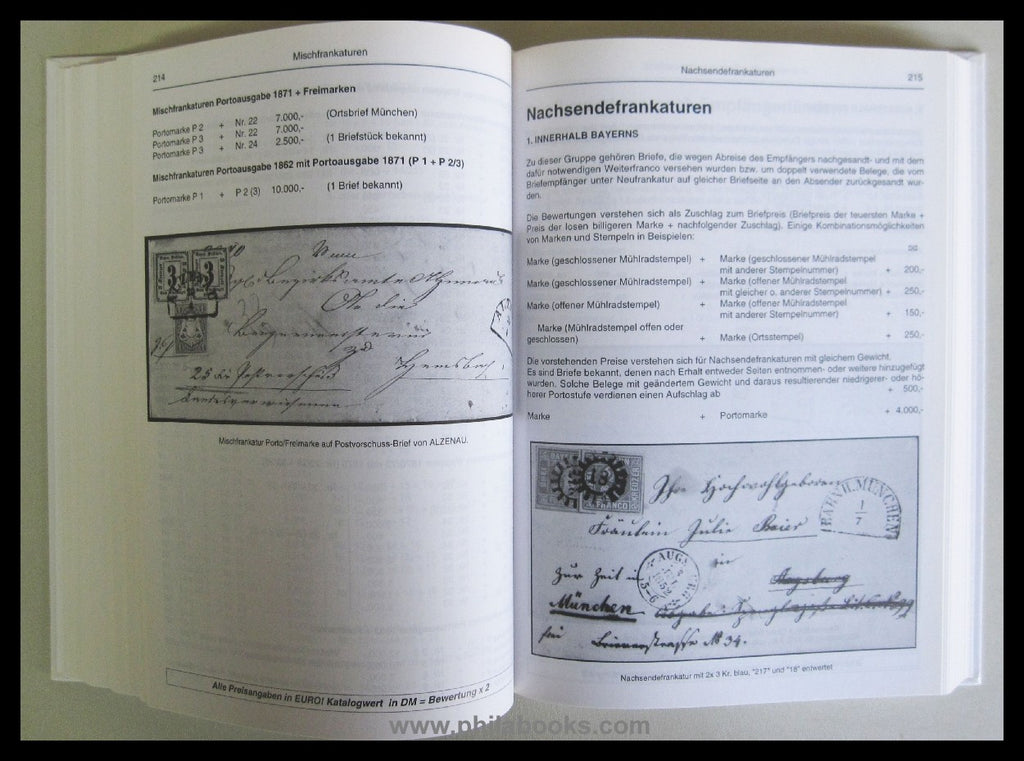 Mischfrankaturen
214
Mischfrankaturen Portoausgabe 1871 + Freimarken
Portomarke P 2 + Nr. 22 7.000,- (Ortsbrief München)
Portomarke P 3 + Nr. 22 7.000,-
Portomarke P 3 + Nr. 24 2.500,- (1 Briefstück bekannt)
Mischfrankaturen Portoausgabe 1862 mit Portoausgabe 1871 (P 1 + P 2/3)
Portomarke P 1 + P 2 (3) 10.000,- (1 Brief bekannt)
Mischfrankatur Porto/Freimarke auf Postvorschuss-Brief von ALZENAU.
Alle Preisangaben in EURO! Katalogwert in DM = Bewertung x 2
Nachsendefrankaturen
215
Nachsendefrankaturen
1. INNERHALB BAYERNS
Zu dieser Gruppe gehören Briefe, die wegen Abreise des Empfängers nachgesandt- und mit dem
dafür notwendigen Weiterfranco versehen wurden bzw. um doppelt verwendete Belege, die vom
Briefempfänger unter Neufrankatur auf gleicher Briefseite an den Absender zurückgesandt wur-
den.
Die Bewertungen verstehen sich als Zuschlag zum Briefpreis (Briefpreis der teuersten Marke +
Preis der losen billigeren Marke + nachfolgender Zuschlag). Einige Kombinationsmöglichkeiten
von Marken und Stempeln in Beispielen:
Marke (geschlossener Mühlradstempel) + Marke (geschlossener Mühlradstempel
mit anderer Stempelnummer) + 200,-
Marke (geschlossener Mühlradstempel) + Marke (offener Mühlradstempel
mit gleicher o. anderer Stempelnummer) + 250,-
Marke (offener Mühlradstempel) + Marke (offener Mühlradstempel
mit anderer Stempelnummer) + 150,-
Marke (Mühlradstempel offen oder
geschlossen) + Marke (Ortsstempel) + 250,-
Die vorstehenden Preise verstehen sich für Nachsendefrankaturen mit gleichem Gewicht.
Es sind Briefe bekannt, denen nach Erhalt entweder Seiten entnommen- oder weitere hinzugefügt
wurden. Solche Belege mit geändertem Gewicht und daraus resultierender niedrigerer- oder hö-
herer Portostufe verdienen einen Aufschlag ab + 500,-
Marke + Portomarke + 4.000,-
BAHNH. MÜNCHEN
1
7
18
FRANCO
Fräulein Julie Baier
in
Zur Zeit in
Augsburg
München
Nachsendefrankatur mit 2x 3 Kr. blau, "217" und "18" entwertet
www.philabooks.com